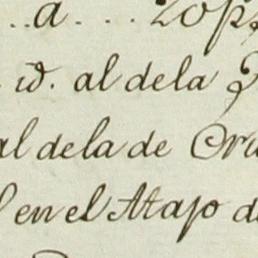 ..a.... 20p
id. al dela
al dela de Cru
l en el Atajo d